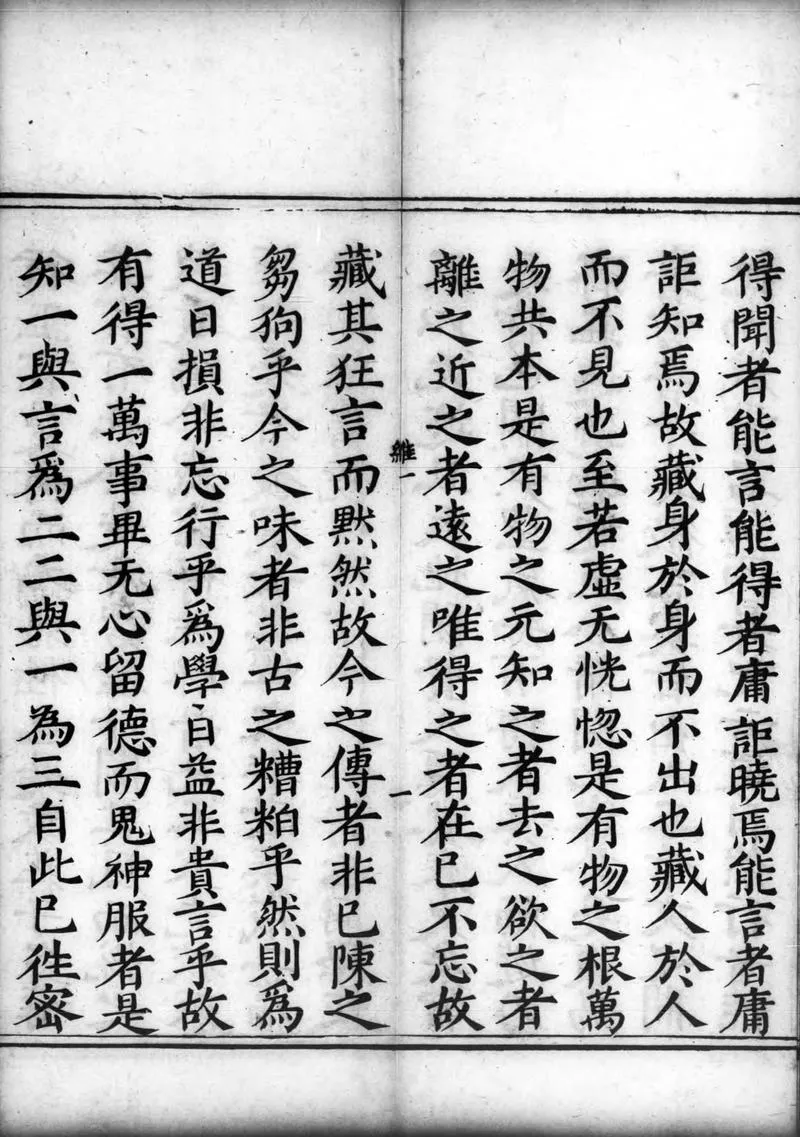 得聞者能言能得者庸詎曉焉能言者庸
詎知焉故藏身於身而不出也藏人於人
而不見也至若虛无恍惚是有物之根萬
物共本是有物之元知之者去之欲之者
離之近之者遠之唯得之者在已不忘故
離一
一
藏其狂言而默然故今之傳者非已陳之
芻狗乎今之味者非古之糟粕乎然則爲
道日損非忘行乎爲學日益非貴言乎故
有得一萬事畢无心留德而鬼神服者是
知一與言爲二二與一為三自此已徃密